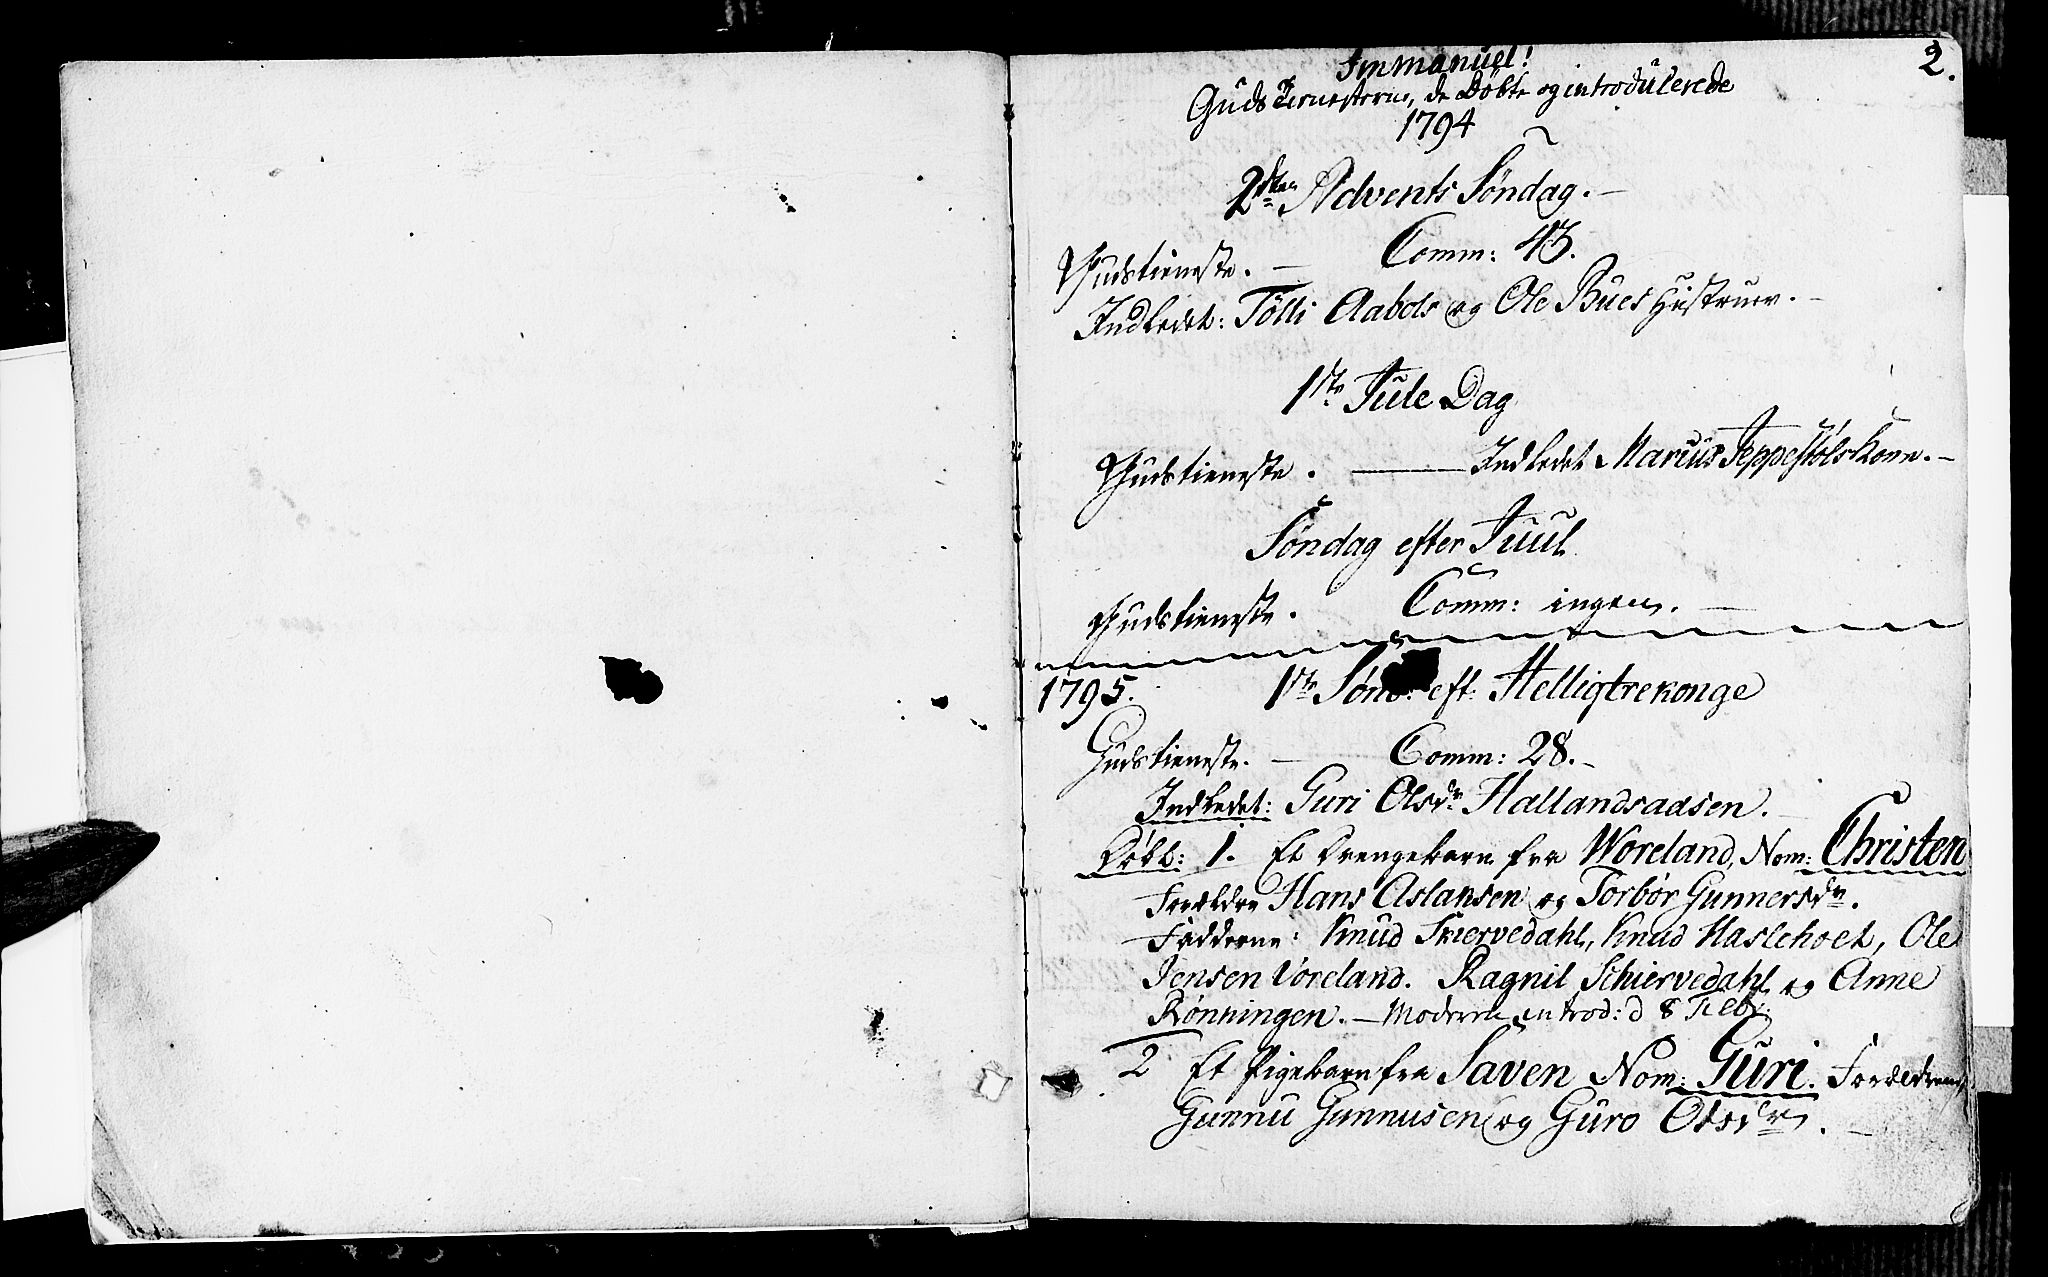 2.
Immanuel!
Guds Tienesterne, de Døbte og introdülerede
1794
2den Advents Søndag. -
Gudstieneste. - Comm: 43.
Indledet: Tölli Aabols og Ole Bües Hüstruer. -
1ste Jüle Dag
Gudstieneste. - Indledet Marcüs Jeppestöls Kone. -
Søndag efter Juul
Gudstieneste. Comm: ingen. -
1795. 1ste Sønd: eft: Helligtrekonge
Gudstieneste. - Comm: 28. -
Indledet: Guri Olsdr Hallandsaasen. -
Døbt: 1. Et Drengebarn fra Woreland, Nom: Christen
Forældre Hans Aslaksen og Torbør Gunnersdr.
Fadderne: Knud Skiervedahl, Knud Haslehoet, Ole
Jensen Voreland. Ragnil Schiervedahl og Anne
Rønningen. - Moderen introd: d 8 Febr:
2 Et Pigebarn fra Saven Nom: Güri. Forældrene
Gunnu Gunnusen og Güro Olsdr. -